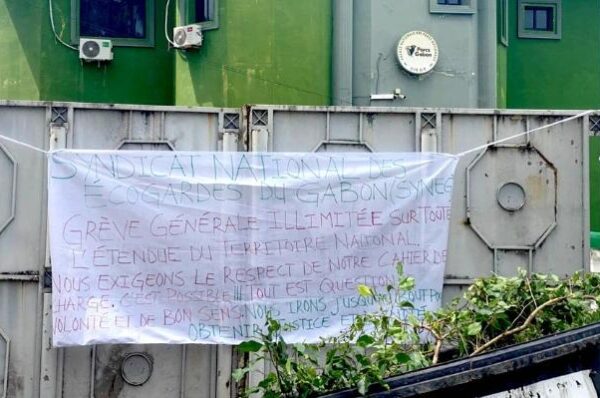 Parcs
Gabon
SYNDICAT NATIONAL DES
ÉCOGARDES DU GABON (SYNEG
GRÈVE GÉNÉRALE ILLIMITÉE SUR TOUTE
L'ÉTENDUE DU TERRITOIRE NATIONAL.
NOUS EXIGEONS LE RESPECT DE NOTRE CAHIER DE
CHARGE, C'EST POSSIBLE!!! TOUT EST QUESTION
VOLONTÉ ET DE BON SENS. NOUS IRONS JUSQU'AU BOUT POU
OBTENIR JUSTICE ET